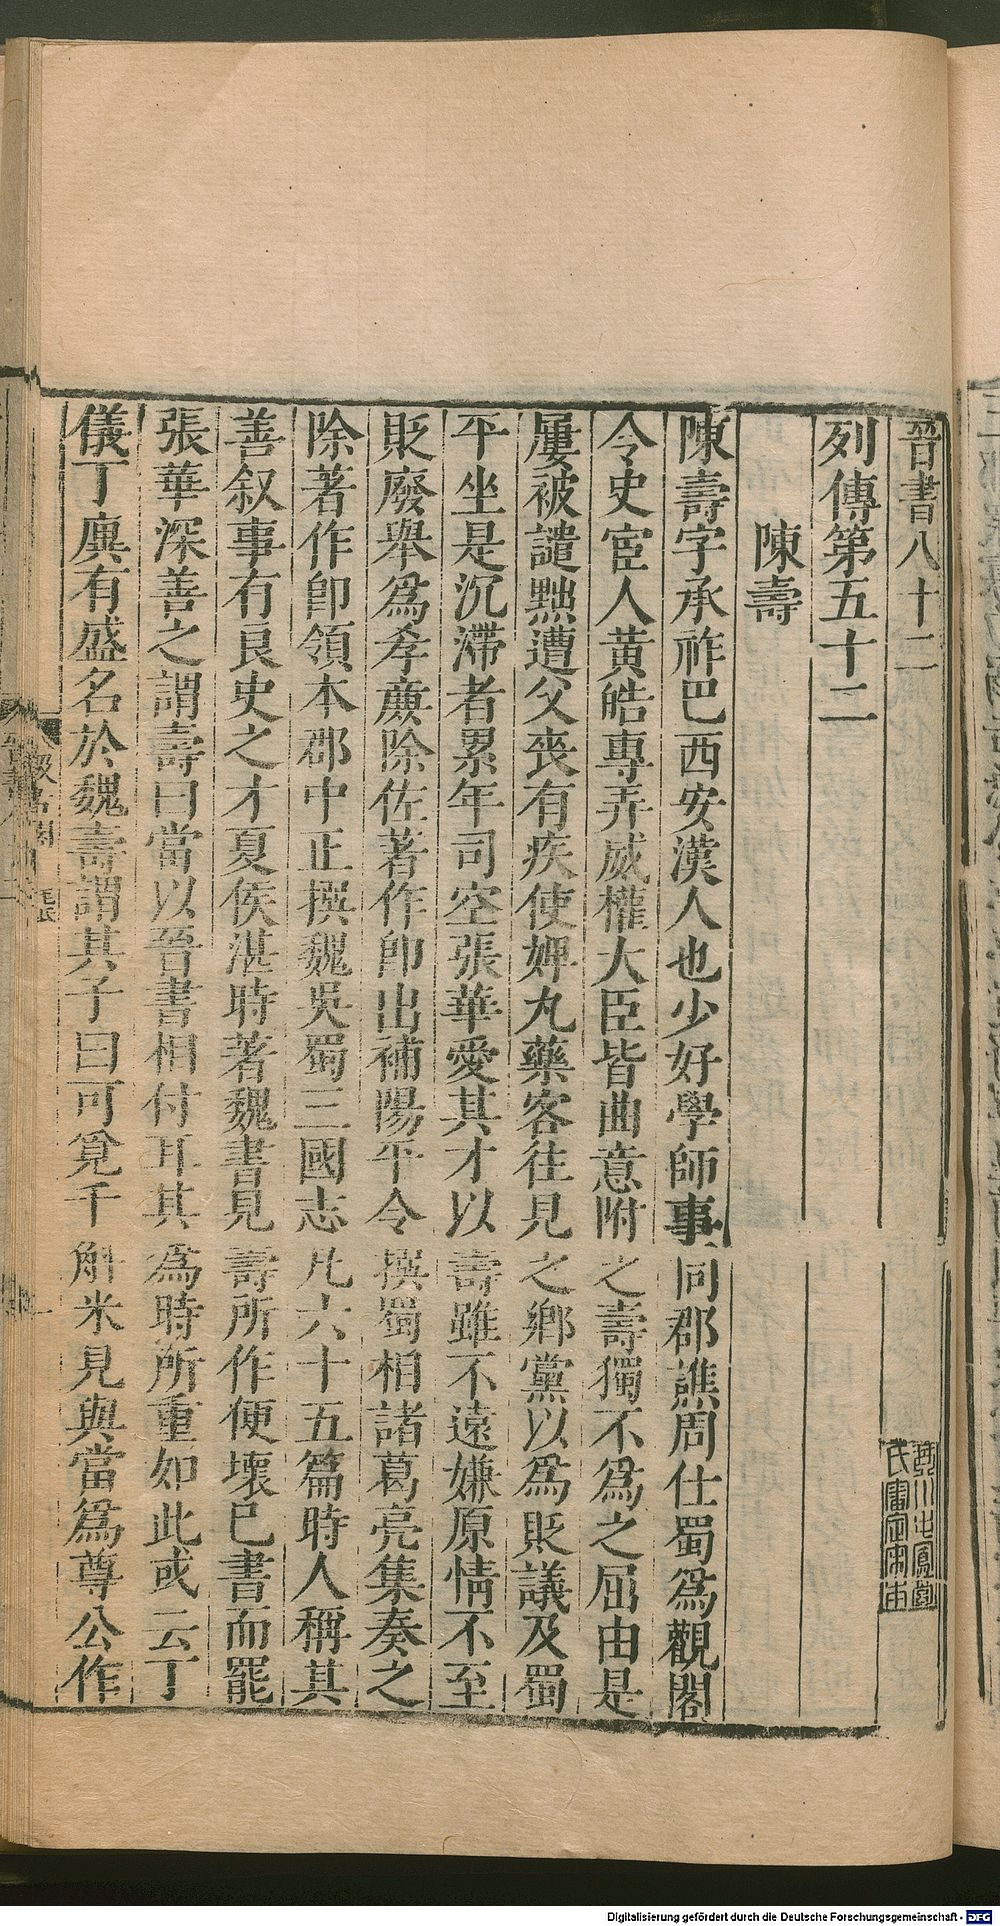 晉書八十二
列傳第五十二
陳壽
陳壽字承祚巴西安漢人也少好學師事同郡譙周仕蜀爲觀閣
令史宦人黃皓專弄威權大臣皆曲意附之壽獨不爲之屈由是
屢被譴黜遭父喪有疾使婢丸藥客往見之鄉黨以爲貶議及蜀
平坐是沉滯者累年司空張華愛其才以壽雖不遠嫌原情不至
貶廢舉爲孝廉除佐著作郎出補陽平令撰蜀相諸葛亮集奏之
除著作郎領本郡中正撰魏吳蜀三國志凡六十五篇時人稱其
善叙事有良史之才夏侯湛時著魏書見壽所作便壞已書而罷
張華深善之謂壽曰當以晉書相付耳其爲時所重如此或云丁
儀丁廙有盛名於魏壽謂其子曰可覓千斛米見與當爲尊公作
汲古閣
毛氏
Digitalisierung gefördert durch die Deutsche Forschungsgemeinschaft - DFG